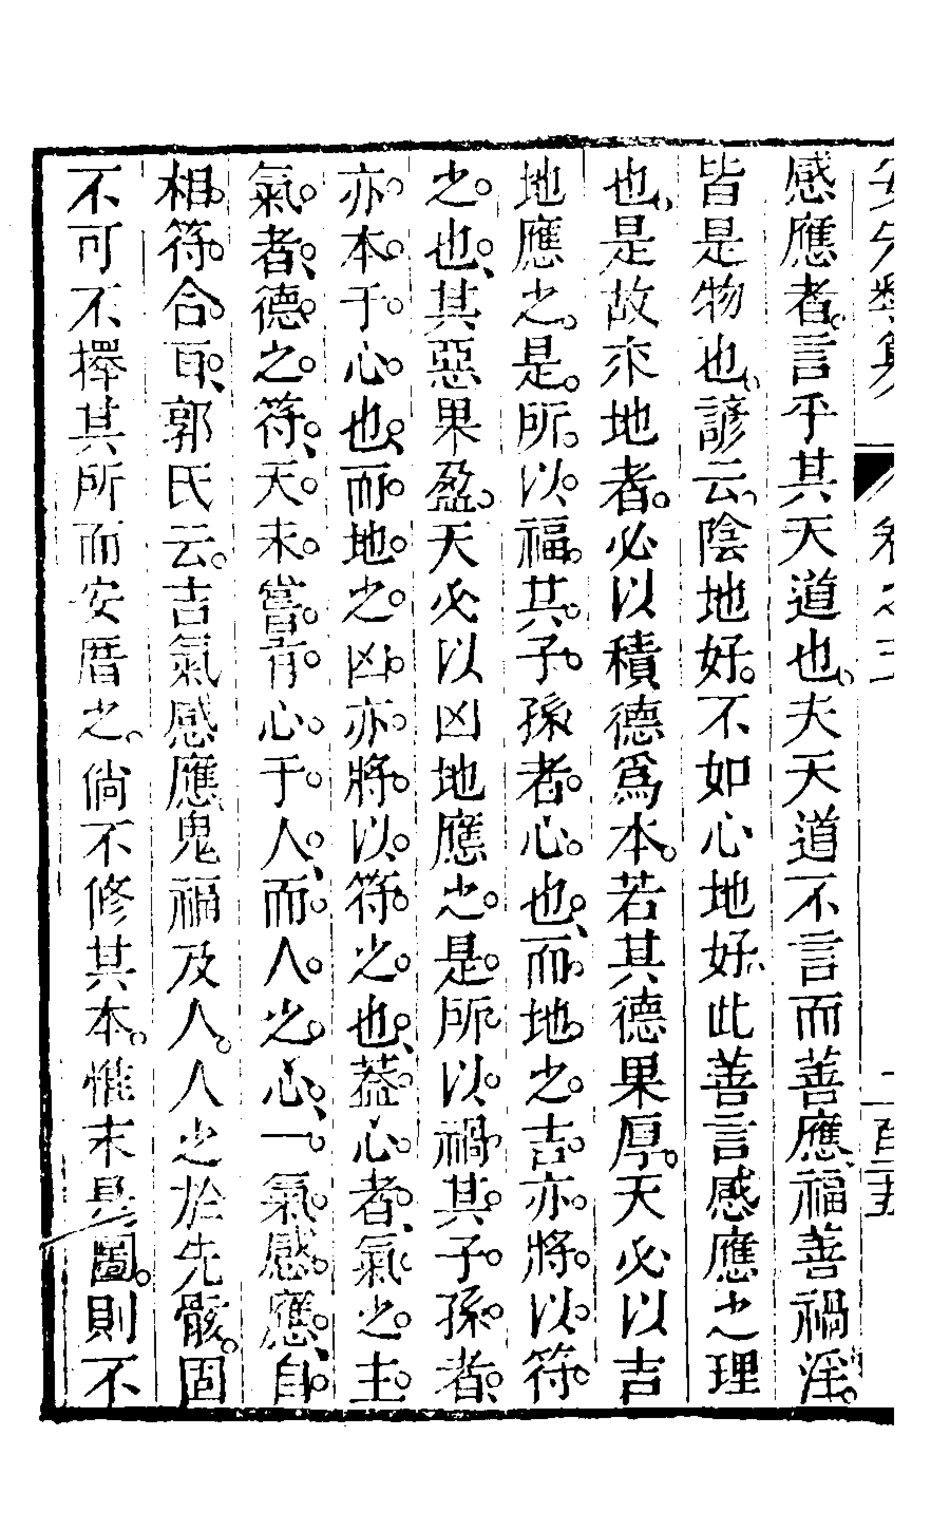 感應者言乎其天道也夫天道不言而善應福善禍淫
皆是物也諺云陰地好不如心地好此善言感應之理
也是故求地者必以積德爲本若其德果厚天必以吉
地應之是所以福其子孫者心也而地之吉亦將以符
之也其惡果盈天必以凶地應之是所以禍其子孫者
亦本于心也而地之凶亦將以符之也葢心者氣之主
氣者德之符天未嘗有心于人而人之心一氣感應自
相符合耳郭氏云吉氣感應鬼福及人人之於先骸固
不可不擇其所而安厝之倘不修其本惟末是圖則不